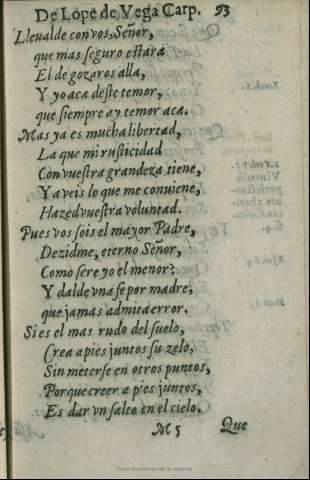 De Lope de Vega Carp. 93
Lleualde con vos, Señor,
que mas seguro estara
El de gozaros alla,
Y yo aca deste temor,
que siempre ay temor aca.
Mas ya es mucha libertad,
La que mi rusticidad
Con vuestra grandeza tiene,
Y a veis lo que me conuiene,
Hazed vuestra voluntad.
Pues vos sois el mayor Padre,
Dezidme, eterno Señor,
Como sere yo el menor?
Y dalde vna fe por madre,
que jamas admita error.
Si es el mas rudo del suelo,
Crea a pies juntos su zelo,
Sin meterse en otros puntos,
Porque creer a pies juntos,
Es dar vn salto en el cielo.
M 5 Que